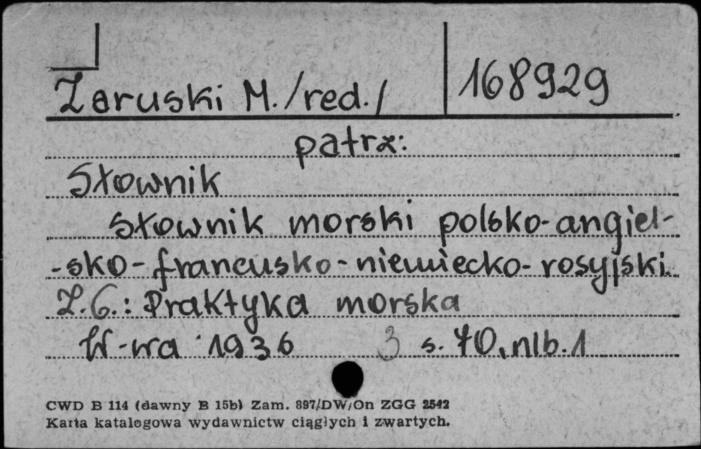 Zaruski M. /red./ 168929
patrz:
Słownik
Słownik morski polsko-angiel-
-sko-francusko-niemiecko-rosyjski.
Z.6.: Praktyka morska
W-wa 1936 3 s. 70, nlb. 1
CWD B 114 (dawny B 15b) Zam. 897/DW/On ZGG 2542
Karta katalogowa wydawnictw ciągłych i zwartych.